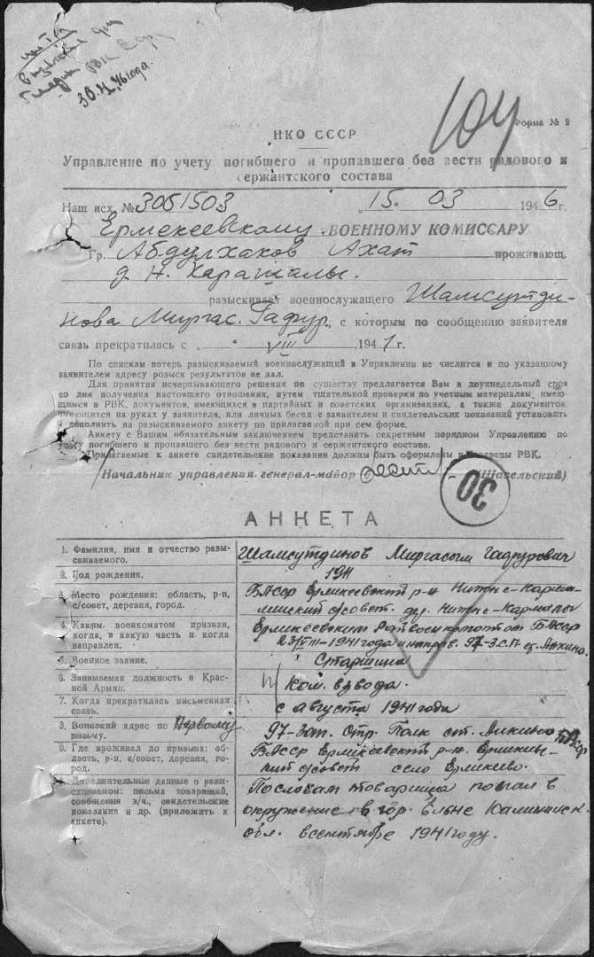 30.XI.46 года.
104
Форма № 2
НКО СССР
Управление по учету погибшего и пропавшего без вести рядового и
сержантского состава
Наш исх. № 3051503 15. 03 1946 г.
Ермекеевскому ВОЕННОМУ КОМИССАРУ
Гр. Абдулхаков Ахат проживающ.
д. Н. Кармалы.
разыскивает военнослужащего Шамсутди-
нова Миргас. Гафур, с которым по сообщению заявителя
связь прекратилась с " VIII 1941 г.
По спискам потерь разыскиваемый военнослужащий в Управлении не числится и по указанному
заявителем адресу розыск результатов не дал.
Для принятия исчерпывающего решения по существу предлагается Вам в двухнедельный срок
со дня получения настоящего отношения, путем тщательной проверки по учетным материалам, имею-
щимся в РВК, документов, имеющихся в партийных и советских организациях, а также документов
имеющихся на руках у заявителя, или личных бесед с заявителем и свидетельских показаний установить
и заполнить на разыскиваемого анкету по прилагаемой при сем форме.
Анкету с Вашим обязательным заключением представить секретным порядком Управлению по
учету погибшего и пропавшего без вести рядового и сержантского состава.
Прилагаемые к анкете свидетельские показания должны быть оформлены и заверены РВК.
Начальник управления генерал-майор (Шавельский)
30
АНКЕТА
1. Фамилия, имя и отчество разы-
скиваемого.
Шамсутдинов Миргасым Гафурович
2. Год рождения.
191
3. Место рождения: область, р-н,
с/совет, деревня, город.
БАССР Ермекеевский р-н Нижне-Карма-
линский с/совет. дер. Нижне-Кармалы
4. Каким военкоматом призван,
когда, в какую часть и когда
направлен.
Ермекеевским Райвоенкоматом БАССР
23/VIII-1941 года и направ. 97-З.С.П. ст. Алкино.
5. Военное звание.
Старшина
6. Занимаемая должность в Крас-
ной Армии.
Ком. взвода.
7. Когда прекратилась письменная
связь.
с августа 1941 года
8. Воинский адрес по Первому
письму.
97-Зап. Стр. Полк ст. Алкино БАССР
9. Где проживал до призыва: об-
ласть, р-н, с/совет, деревня, го-
род.
БАССР Ермекеевский р-н. Ермекеевс-
кий с/совет село Ермекеево.
Дополнительные данные о разы-
скиваемом: письма товарищей,
сообщения в/ч, свидетельские
показания и др. (приложить к
анкете).
По словам товарища попал в
окружение в гор. Ельне Калининск.
обл. в сентябре 1941 году.